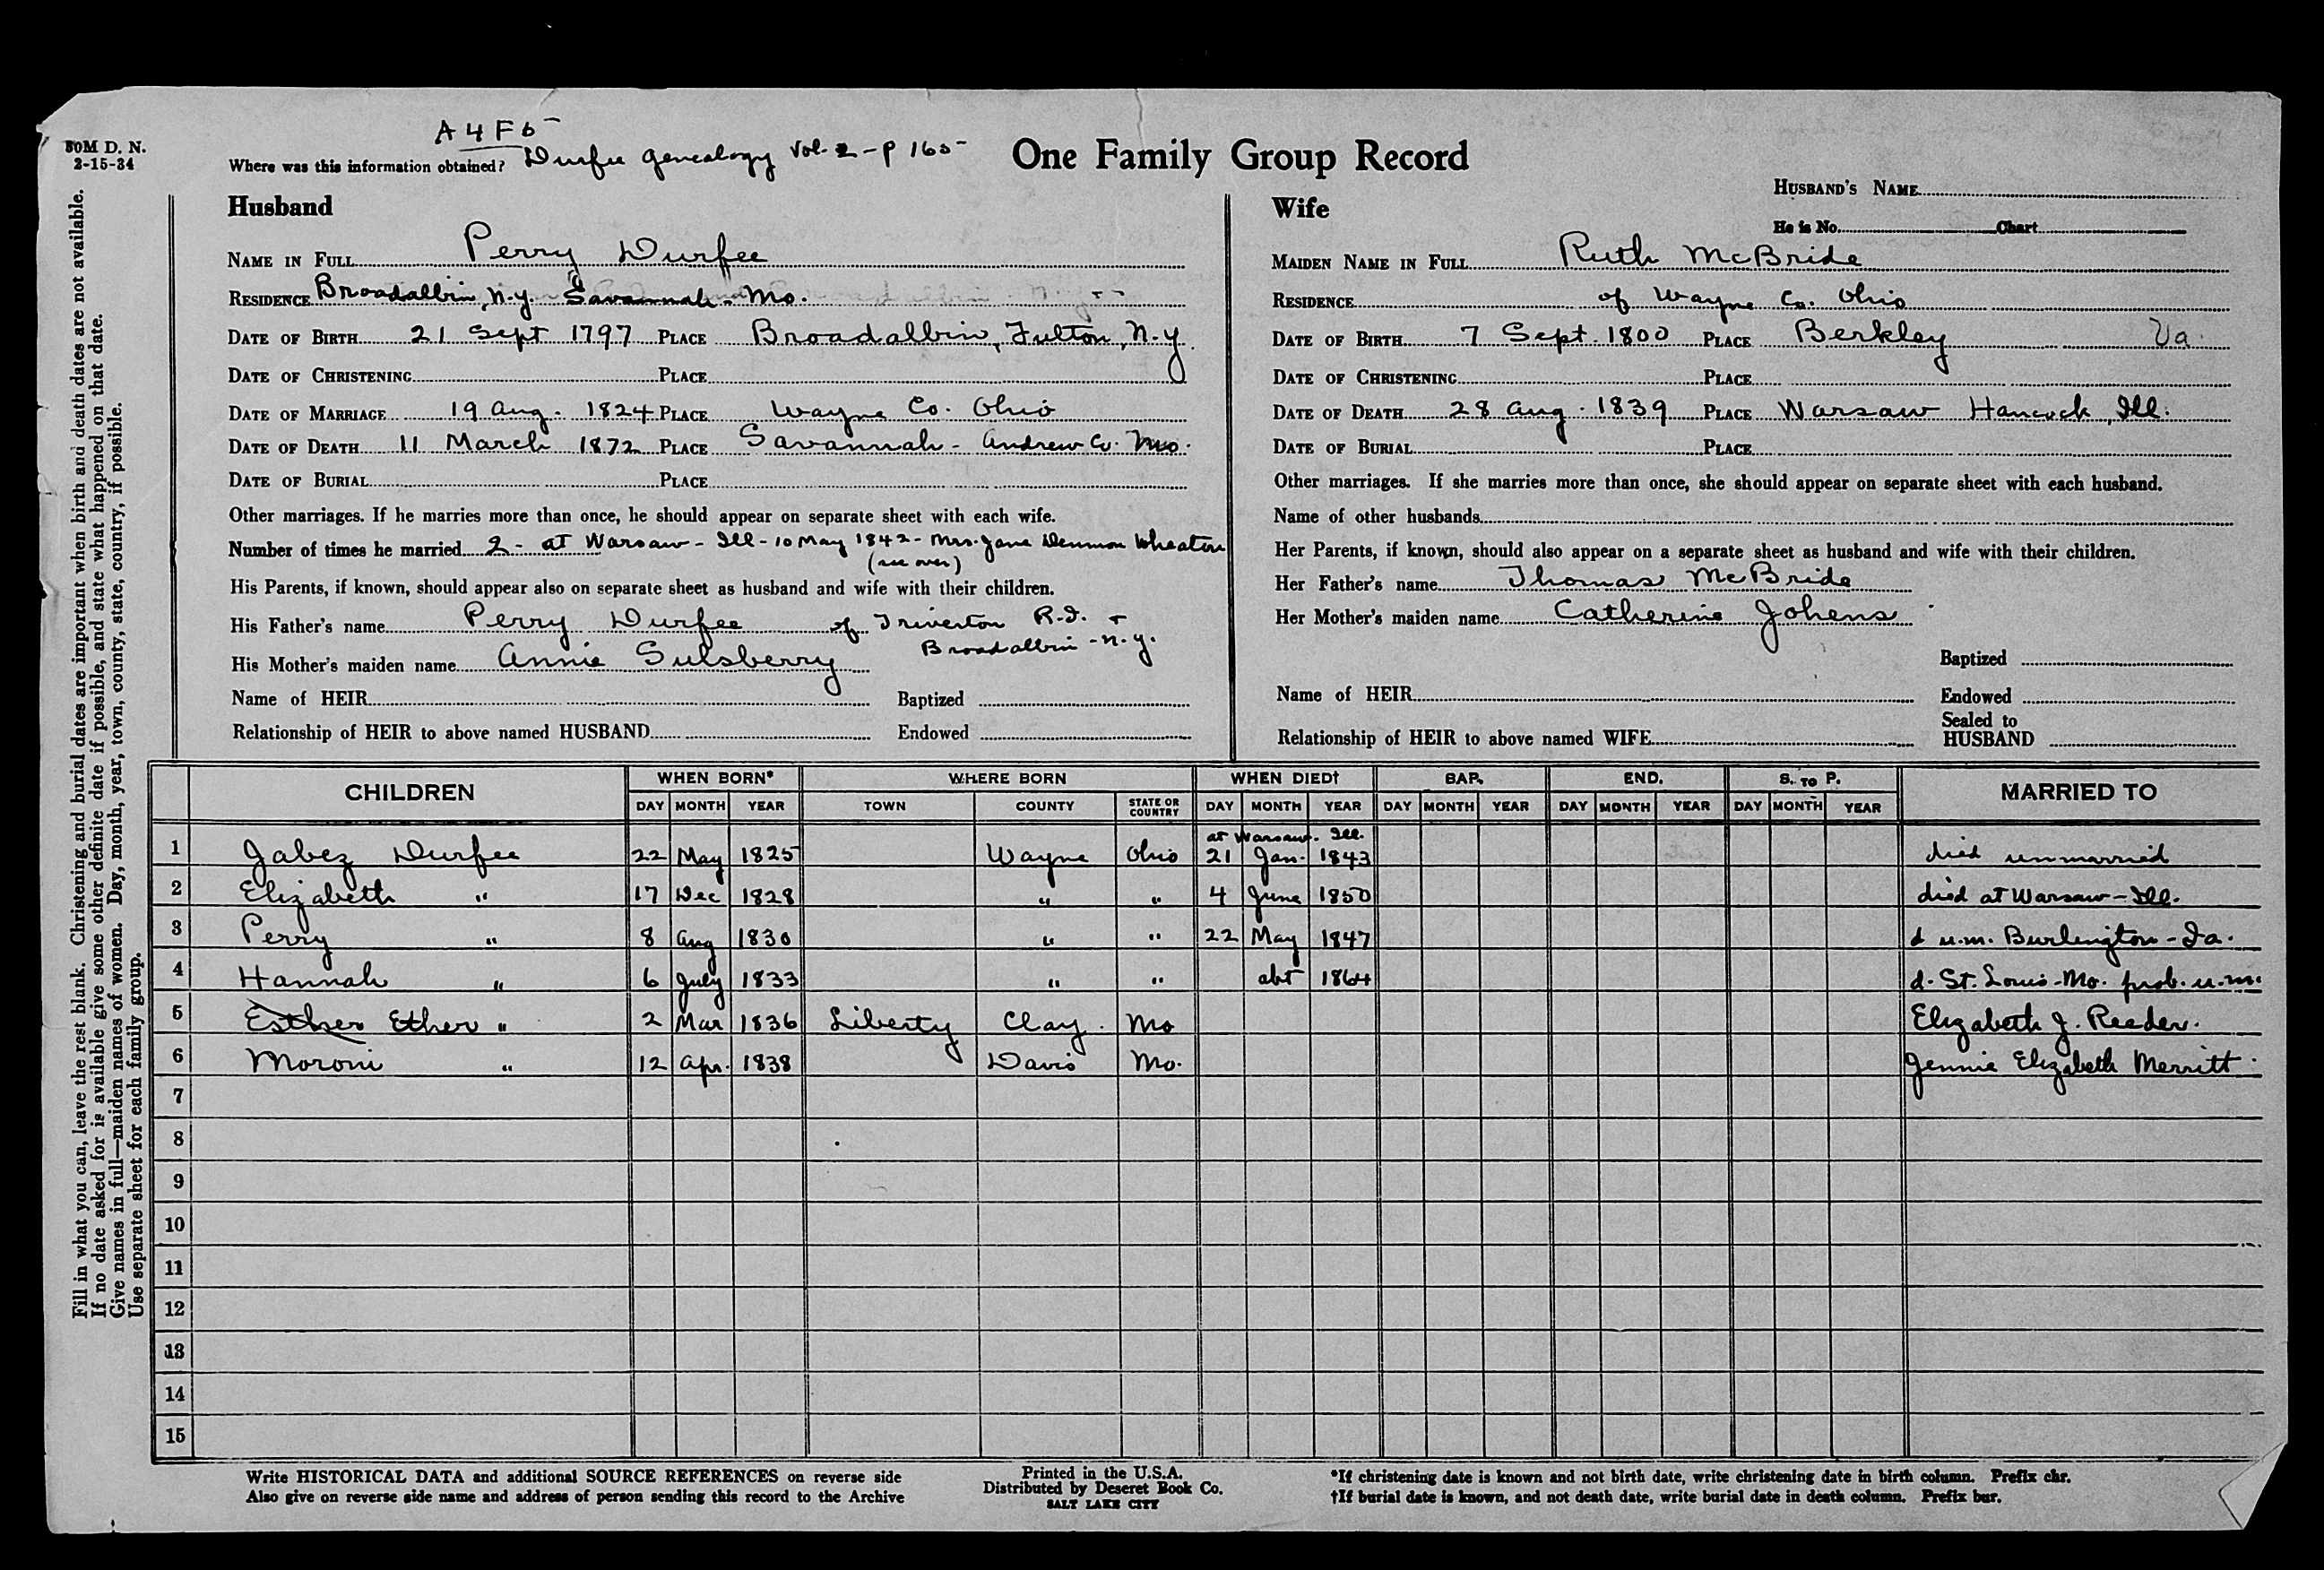 A4F6
80M D. N.
2-15-34
Where was this information obtained? Durfee Genealogy Vol. 2 - P 165
One Family Group Record
HUSBAND'S NAME
He is No. Chart
Husband
NAME IN FULL Perry Durfee
RESIDENCE Broadalbin, N.Y. Savannah - Mo.
DATE OF BIRTH 21 Sept 1797 PLACE Broadalbin, Fulton, N.Y.
DATE OF CHRISTENING PLACE
DATE OF MARRIAGE 19 Aug. 1824 PLACE Wayne Co. Ohio
DATE OF DEATH 11 March 1872 PLACE Savannah - Andrew Co. Mo.
DATE OF BURIAL PLACE
Other marriages. If he marries more than once, he should appear on separate sheet with each wife.
Number of times he married 2 - at Warsaw - Ill - 10 May 1842 - Mrs. Jane Denmon Wheaton
(see over)
His Parents, if known, should appear also on separate sheet as husband and wife with their children.
His Father's name Perry Durfee of Triverton R.I. +
Broadalbin - N.Y.
His Mother's maiden name Annie Sulsberry
Name of HEIR Baptized
Relationship of HEIR to above named HUSBAND Endowed
Wife
MAIDEN NAME IN FULL Ruth McBride
RESIDENCE of Wayne Co. Ohio
DATE OF BIRTH 7 Sept. 1800 PLACE Berkley Va.
DATE OF CHRISTENING PLACE
DATE OF DEATH 28 Aug. 1839 PLACE Warsaw Hancock, Ill.
DATE OF BURIAL PLACE
Other marriages. If she marries more than once, she should appear on separate sheet with each husband.
Name of other husbands
Her Parents, if known, should also appear on a separate sheet as husband and wife with their children.
Her Father's name Thomas McBride
Her Mother's maiden name Catherine Johens
Baptized
Name of HEIR Endowed
Sealed to
Relationship of HEIR to above named WIFE HUSBAND
Fill in what you can, leave the rest blank. Christening and burial dates are important when birth and death dates are not available.
If no date asked for is available give some other definite date if possible, and state what happened on that date.
Give names in full—maiden names of women. Day, month, year, town, county, state, country, if possible.
Use separate sheet for each family group.
CHILDREN WHEN BORN* WHERE BORN WHEN DIED† BAP. END. S. TO P. MARRIED TO
DAY MONTH YEAR TOWN COUNTY STATE OR COUNTRY DAY MONTH YEAR DAY MONTH YEAR DAY MONTH YEAR DAY MONTH YEAR
at Warsaw. Ill.
1 Jabez Durfee 22 May 1825 Wayne Ohio 21 Jan. 1843 died unmarried
2 Elizabeth " 17 Dec 1828 " " 4 June 1850 died at Warsaw - Ill.
3 Perry " 8 Aug 1830 " " 22 May 1847 d u.m. Burlington - Ia.
4 Hannah " 6 July 1833 " " abt 1864 d. St. Louis - Mo. prob. u.m.
5 Esther Ether " 2 Mar 1836 Liberty Clay. Mo Elizabeth J. Reeder.
6 Moroni " 12 Apr. 1838 Davis Mo. Jennie Elizabeth Merritt
7
8
9
10
11
12
13
14
15
Write HISTORICAL DATA and additional SOURCE REFERENCES on reverse side
Also give on reverse side name and address of person sending this record to the Archive
Printed in the U.S.A.
Distributed by Deseret Book Co.
SALT LAKE CITY
*If christening date is known and not birth date, write christening date in birth column. Prefix chr.
†If burial date is known, and not death date, write burial date in death column. Prefix bur.